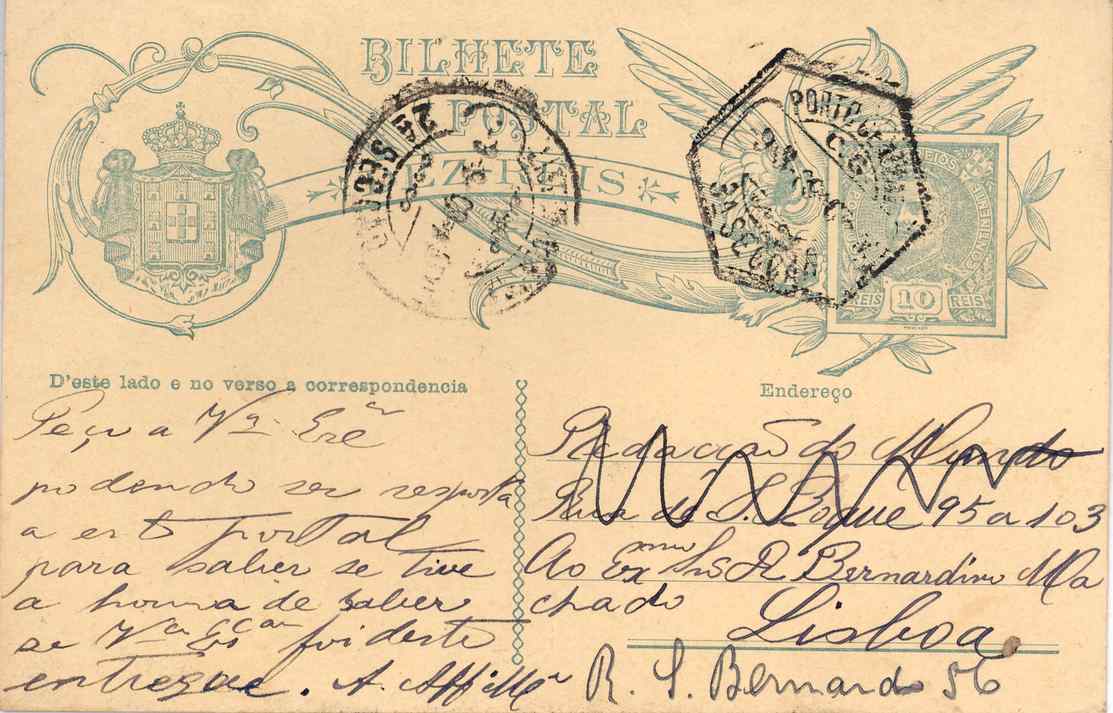 BILHETE
POSTAL
DEZ REIS
2ª SECÇÃO
PORTO CENTRAL
3ª SECÇÃO
CORREIOS
REIS 10 REIS
D'este lado e no verso a correspondencia
Endereço
Peço a Vª Exª
podendo ser resposta
a est postal
para saber se tive
a honra de saber
se Vª foi deste
entregue. A.
Redacção do Mundo
Rua de S. Roque 95 a 103
Ao Exmo Snr Dr Bernardino Ma
chado
Lisboa
R. S. Bernardo 56